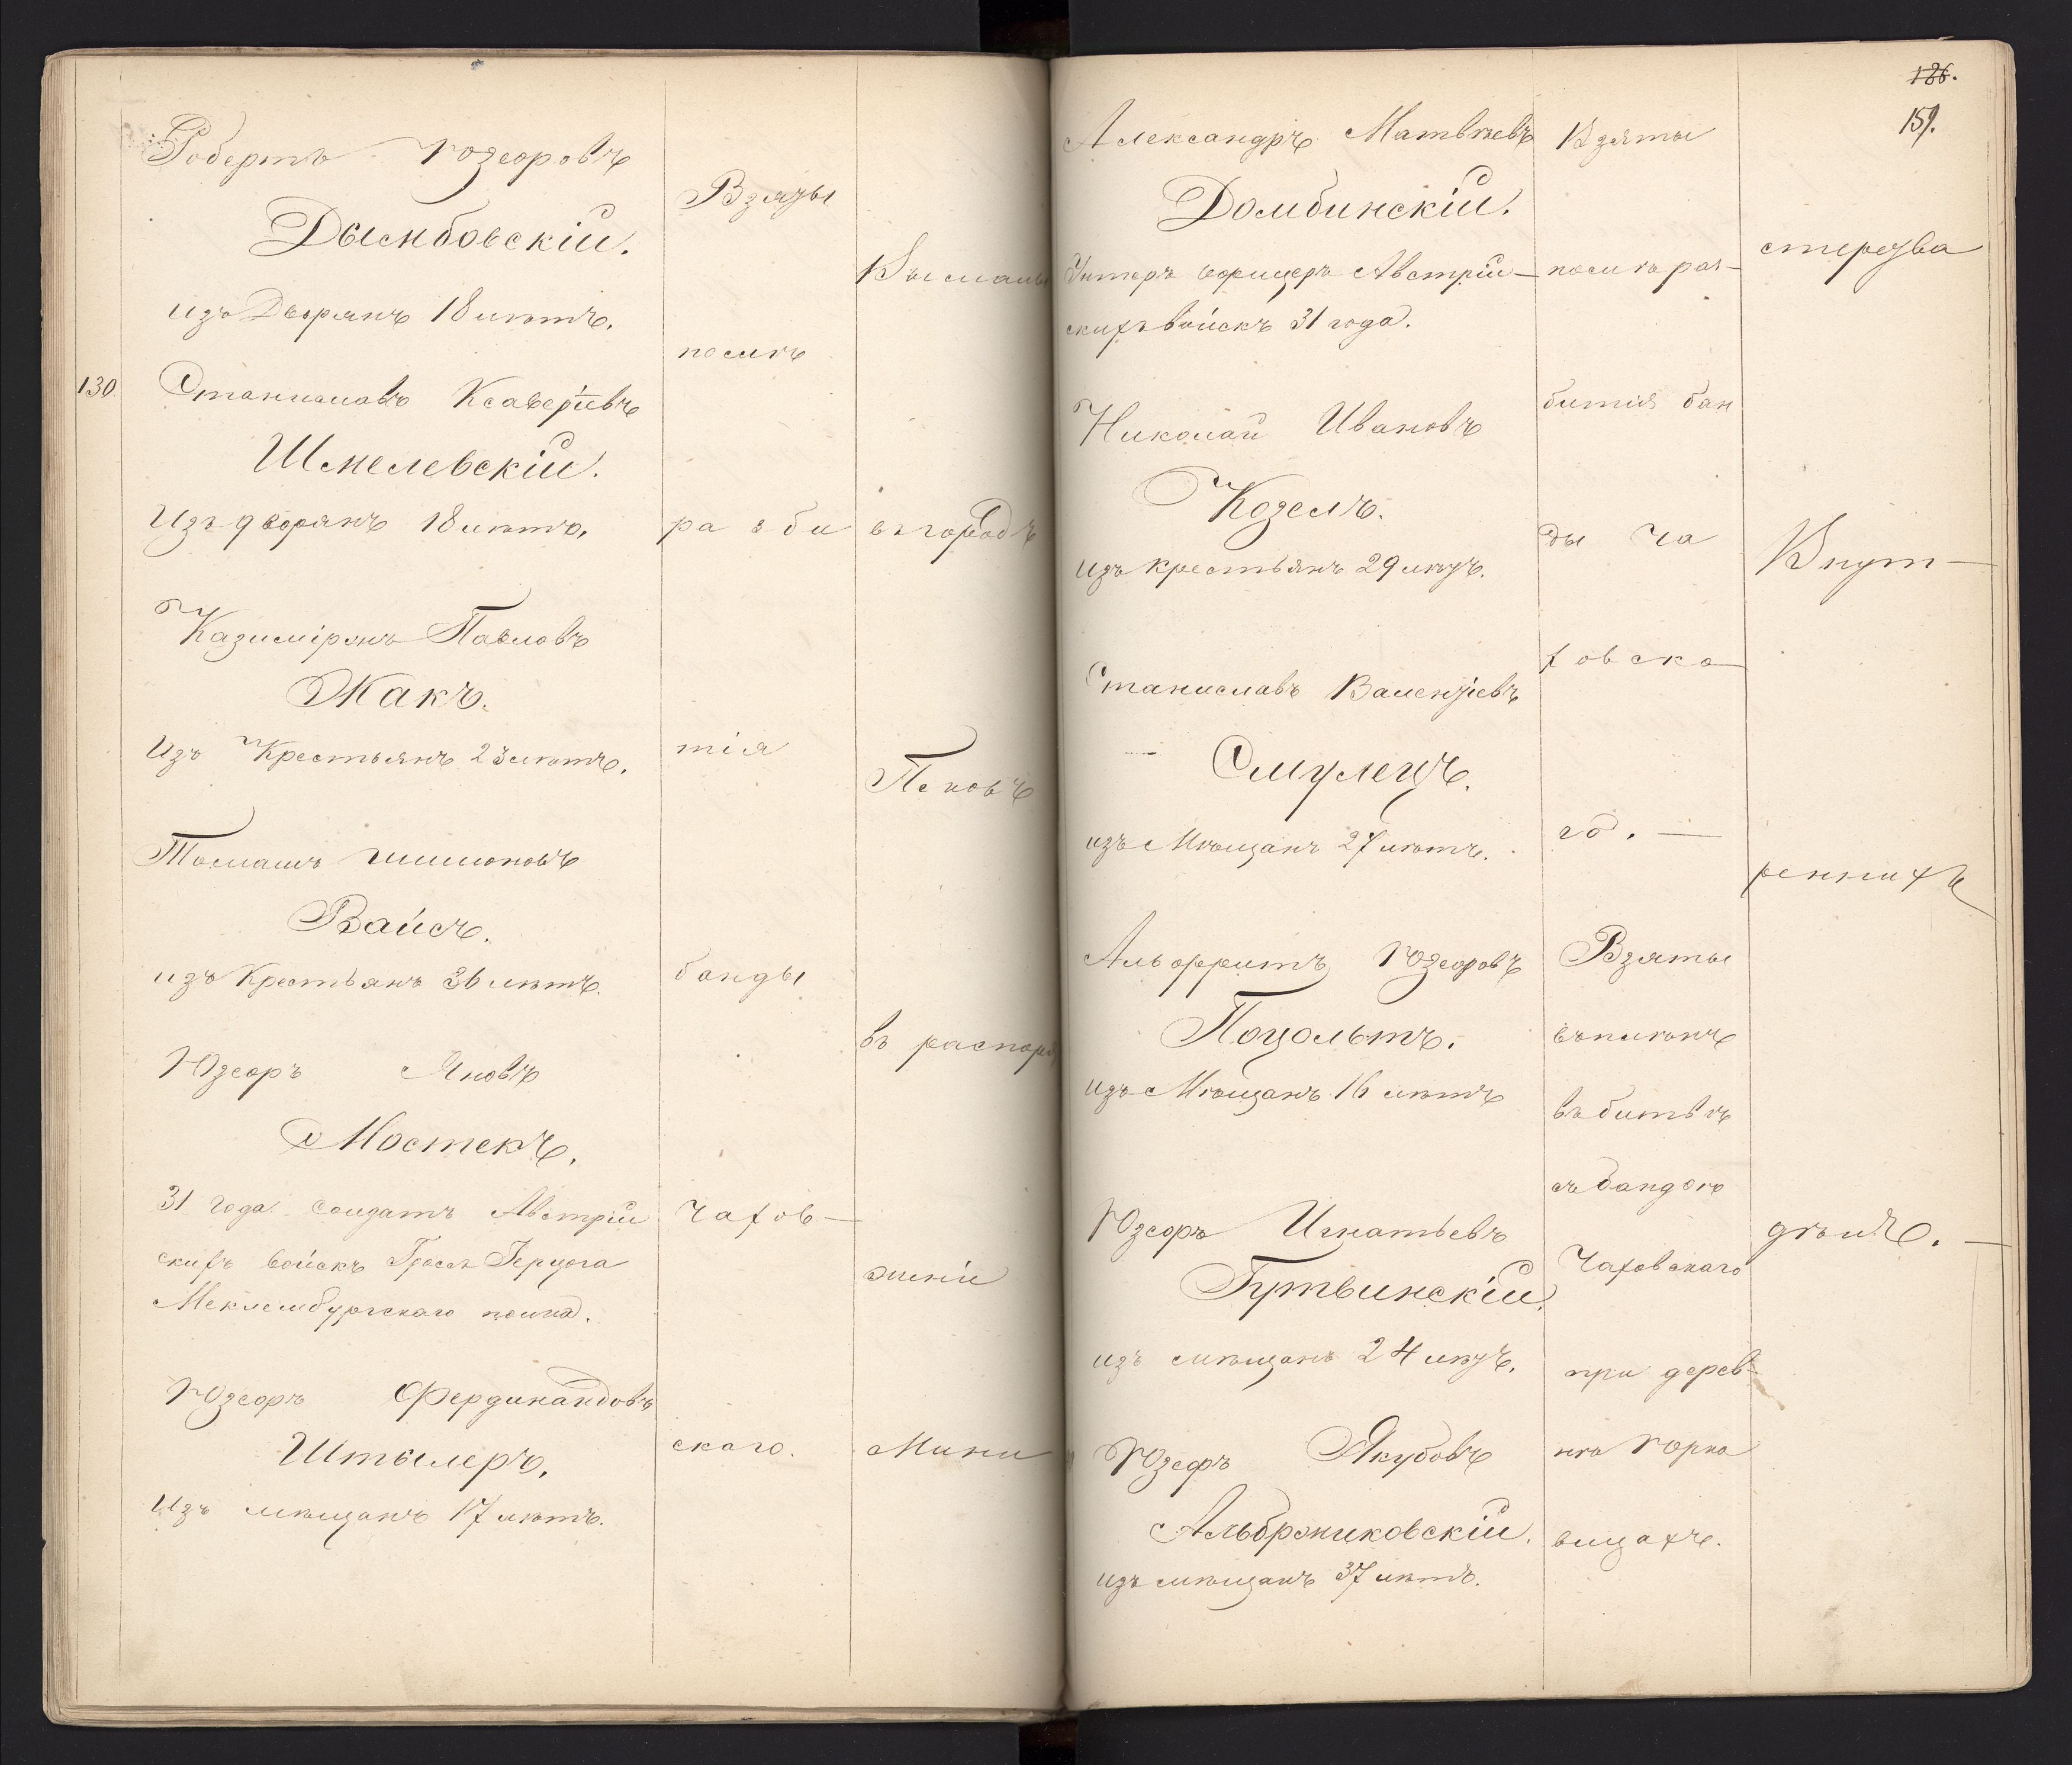 Робертъ Юзефовъ
Дымбовскій.
изъ Дворянъ 18 лѣтъ.
130 Станиславъ Ксаверіевъ
Шмелевскій.
Изъ дворянъ 18 лѣтъ.
Казиміръ Павловъ
Жакъ.
Изъ Крестьянъ 23 лѣтъ.
Томашъ Шимоновъ
Вайсъ.
изъ Крестьянъ 36 лѣтъ.
Юзефъ Яновъ
Мостекъ.
31 года солдатъ Австрій
скихъ войскъ Гросъ Герцога
Мекленбургскаго полка.
Юзефъ Фердинандовъ
Штылеръ.
Изъ мѣщанъ 17 лѣтъ.
Взяты
послѣ
разби
тія
банды
Чахов-
скаго.
Высланы
въ городъ
Псковъ
въ распоря
женіе
Мини
126.
159.
Александръ Матвѣевъ
Домбинскій.
Унтеръ офицеръ Австрій-
скихъ войскъ 31 года.
Николай Ивановъ
Козелъ.
изъ крестьянъ 29 лѣтъ.
Станиславъ Валентіевъ
Смулецъ.
изъ Мѣщанъ 27 лѣтъ.
Альфритъ Юзефовъ
Поцольтъ.
изъ Мѣщанъ 16 лѣтъ
Юзефъ Игнатьевъ
Гутвинскій.
изъ мѣщанъ 24 лѣтъ.
Юзефъ Якубовъ
Альброниковскій.
изъ мѣщанъ 37 лѣтъ.
Взяты
послѣ раз-
битія бан
ды Ча
ховска
го. —
Взяты
въ плѣнъ
въ битвѣ
съ бандою
Чаховскаго
при дерев-
нѣ Юрко
вицахъ.
стерства
Внут-
реннихъ
дѣлъ. —